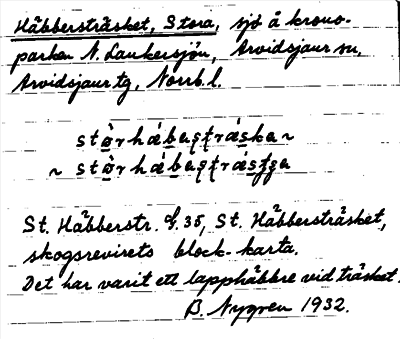 Häbbersträsket, Stora, sjö å krono-
parken N. Lankersjön, Arvidsjaur sn,
Arvidsjaur tg, Norrb. l.
St. Häbberstr. 35, St. Häbbersträsket,
skogsrevirets block-karta.
Det har varit ett lapphäbbre vid träsket.
B. Nygren 1932.